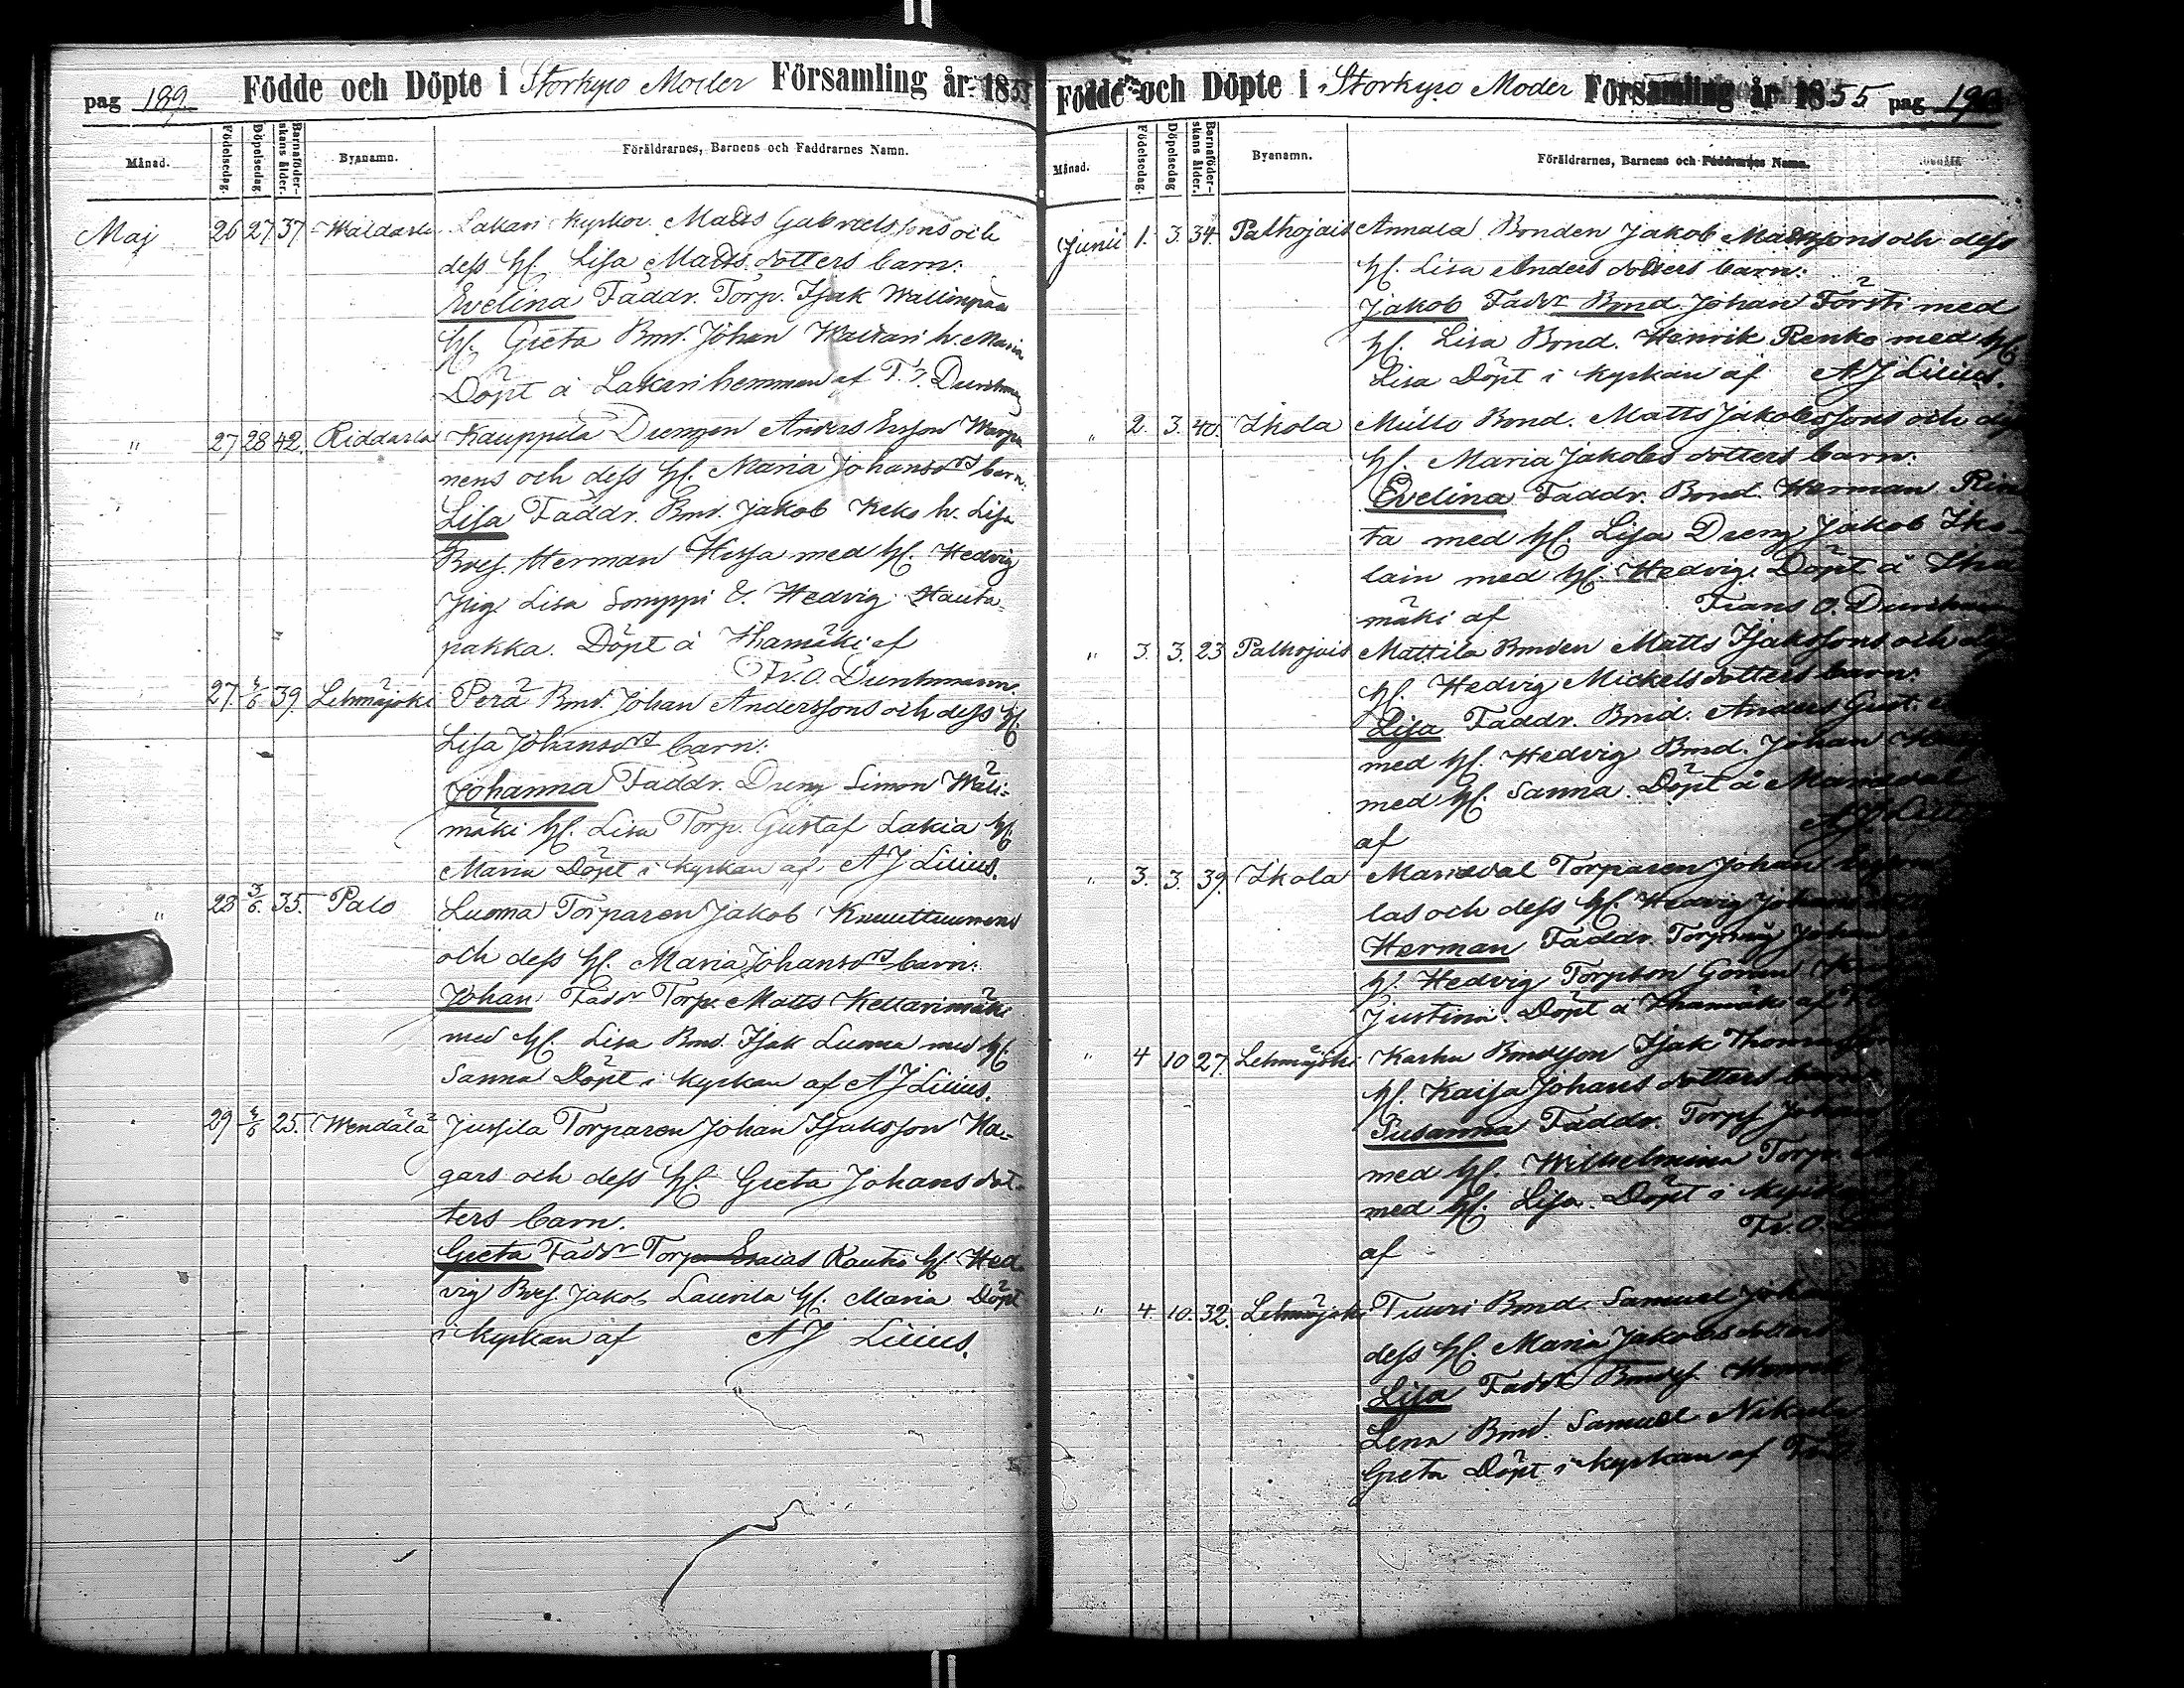 pag 189.
Födde och Döpte i Storkyro Moder Församling år 1855
Månad.
Födelsedag.
Döpelsedag.
Barnaföder-
skans ålder.
Byanamn.
Föräldrarnes, Barnens och Faddrarnes Namn.
Maj 26 27 37 Lakari Kyrkov. Matts Gabrielssons och
dess H. Lisa Matts dotters barn:
Evelina Faddr. Torp. Isak Wallinpää
H. Greta Bond. Johan Waltari h. Maria
Döpt å Lakari hemman af
" 27 28 42. Riddarla Kauppila Drengen Anders Ersson
nens och dess H. Maria Johansdrs barn:
Lisa Faddr. Bond. Jakob Keko h. Lisa
Herman Hissa med H. Hedvig
Pig. Lisa Somppi & Hedvig Hauta-
pakka. Döpt å Ikamäki af
Fr. O. Durchmann.
27. 4/6 39. Lehmäjoki Perä Bond. Johan Anderssons och dess H.
Lisa Johansdrs barn:
Johanna Faddr. Dreng Simon Wäli-
mäki H. Lisa Torp. Gustaf Lakia H.
Maria Döpt i Kyrkan af A J Lilius.
" 28 3/6. 35. Palo Luoma Torparen Jakob Knuuttunens
och dess H. Maria Johansdrs barn:
Johan Faddr Torp. Matts Kellarimäki
med H. Lisa Bond. Isak Luoma med H.
Sanna Döpt i Kyrkan af A J Lilius.
" 29 4/6 25. Wendälä Jussila Torparen Johan Isaksson Ha-
gars och dess H. Greta Johans dot-
ters barn.
Greta Faddr Torp Esaias Rauko H. Hed
vig Jakob Laurila H. Maria Döpt
i Kyrkan af A J Lilius.
Födde och Döpte i Storkyro Moder Församling år 1855 pag 190
Månad.
Födelsedag.
Döpelsedag
Barnaföder-
skans ålder.
Byanamn.
Föräldrarnes, Barnens och Faddrarnes Namn.
Junii 1. 3. 34. Palhojais Annala Bonden Jakob Mattssons och dess
H. Lisa Anders dotters barn:
Jakob Faddr Bond. Johan Försti med
H. Lisa Bond. Henrik Renko med H.
Lisa Döpt i Kyrkan af A J Lilius.
" 2. 3. 40. Ikola Müllo Bond. Matts Jakobssons och dess
H. Maria Jakobs dotters barn:
Evelina Faddr. Bond. Herman
ta med H. Lisa Dreng Jakob Iko-
lain med H. Hedvig. Döpt å Ika
mäki af Frans O. Durchmann
" 3. 3. 23 Palhojais Mattila Bonden Matts Isakssons och dess
H. Hedvig Mickels dotters barn:
Lisa Faddr. Bond. Anders Gust.
med H. Hedvig Bond. Johan
med H. Sanna. Döpt å Mariedal
af A J Lilius
" 3. 3. 39. Ikola Mariedal Torparen Johan
las och dess H. Hedvig Johans
Herman Faddr. Johan
H. Hedvig Göran
Justina. Döpt å Ikamäki af
" 4 10 27. Lehmäjoki Karhu Bondeson Isak
H. Kaisa Johans dotters barn
Susanna Faddr. Johan
med H. Wilhelmina Torp.
med H. Lisa. Döpt i Kyrkan
af Fr. O.
" 4. 10. 32. Lehmäjoki Tuuri Bond. Samuel Johan
dess H. Maria Jakobs dotters
Lisa Faddr
Lena Bond. Samuel
Greta Döpt i Kyrkan af